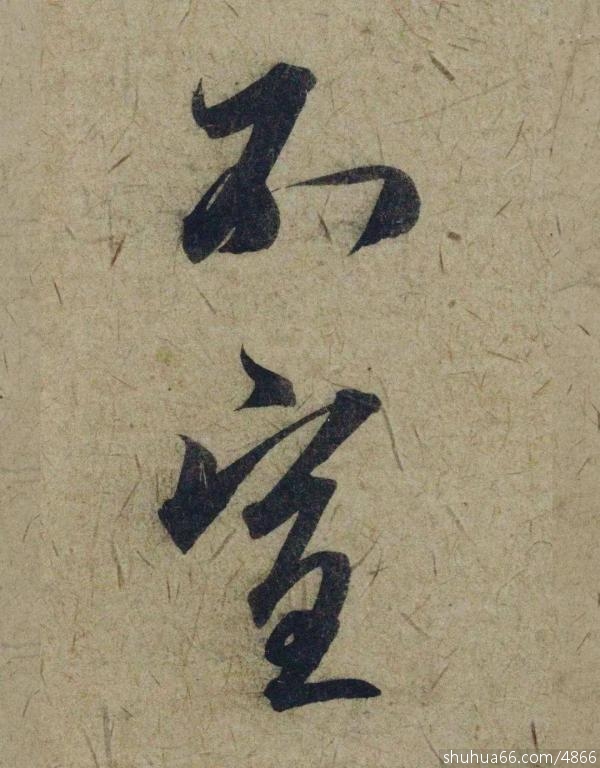 不宣
shuhua66.com/4866